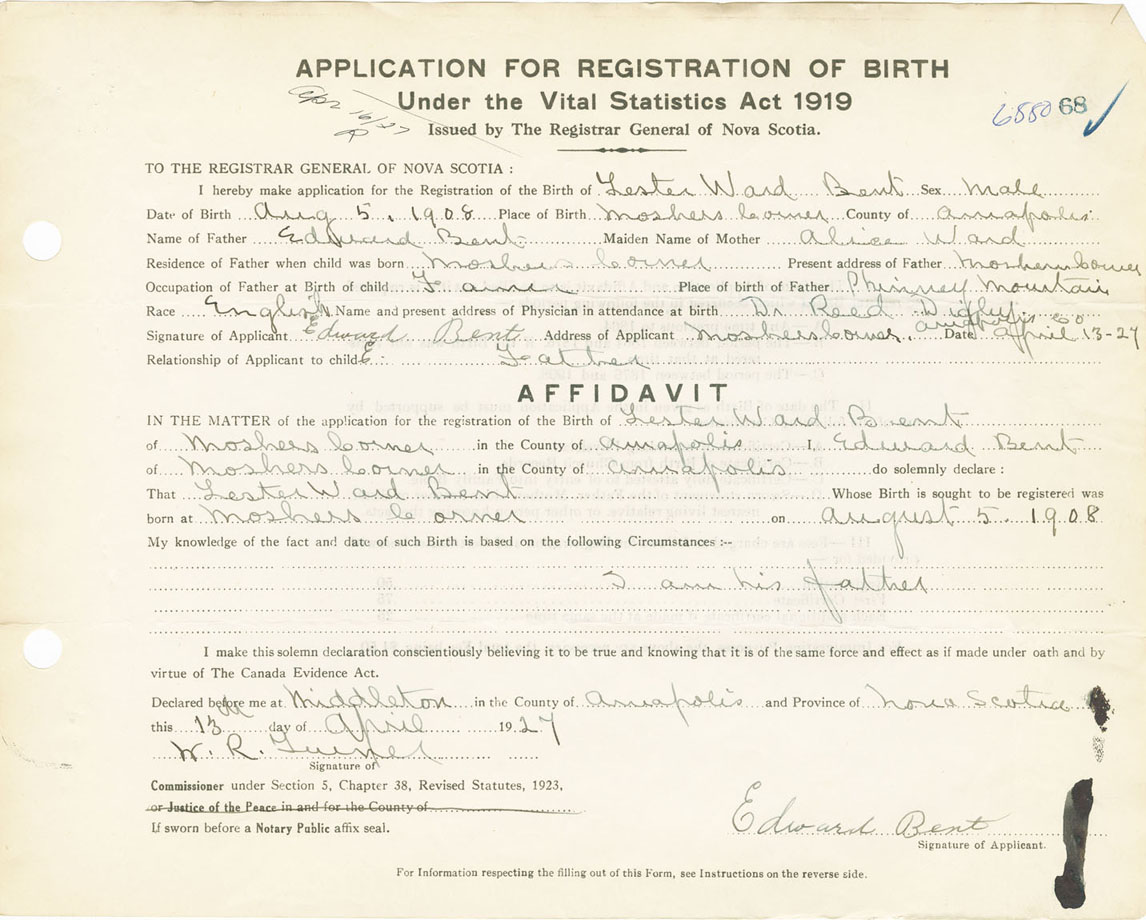 APPLICATION FOR REGISTRATION OF BIRTH
Under the Vital Statistics Act 1919
Apr 16/27
68
Issued by The Registrar General of Nova Scotia.
TO THE REGISTRAR GENERAL OF NOVA SCOTIA :
I hereby make application for the Registration of the Birth of Lester Ward Bent Sex Male
Date of Birth Aug 5, 1908 Place of Birth Moshers Corner County of Annapolis
Name of Father Edward Bent Maiden Name of Mother Alice Ward
Residence of Father when child was born Moshers Corner Present address of Father Moshers Corner
Occupation of Father at Birth of child Farmer Place of birth of Father Phinney Mountain
Race English Name and present address of Physician in attendance at birth Dr Reed Digby
Signature of Applicant Edward Bent Address of Applicant Moshers Corner, Annapolis Co Date April 13-27
Relationship of Applicant to child Father
AFFIDAVIT
IN THE MATTER of the application for the registration of the Birth of Lester Ward Bent
of Moshers Corner in the County of Annapolis I, Edward Bent
of Moshers Corner in the County of Annapolis do solemnly declare :
That Lester Ward Bent Whose Birth is sought to be registered was
born at Moshers Corner on August 5, 1908
My knowledge of the fact and date of such Birth is based on the following Circumstances :--
I am his father
I make this solemn declaration conscientiously believing it to be true and knowing that it is of the same force and effect as if made under oath and by
virtue of The Canada Evidence Act.
Declared before me at Middleton in the County of Annapolis and Province of Nova Scotia
this 13th day of April 1927
W. R.
Signature of
Commissioner under Section 5, Chapter 38, Revised Statutes, 1923,
or Justice of the Peace in and for the County of
If sworn before a Notary Public affix seal.
Edward Bent
Signature of Applicant.
For Information respecting the filling out of this Form, see Instructions on the reverse side.